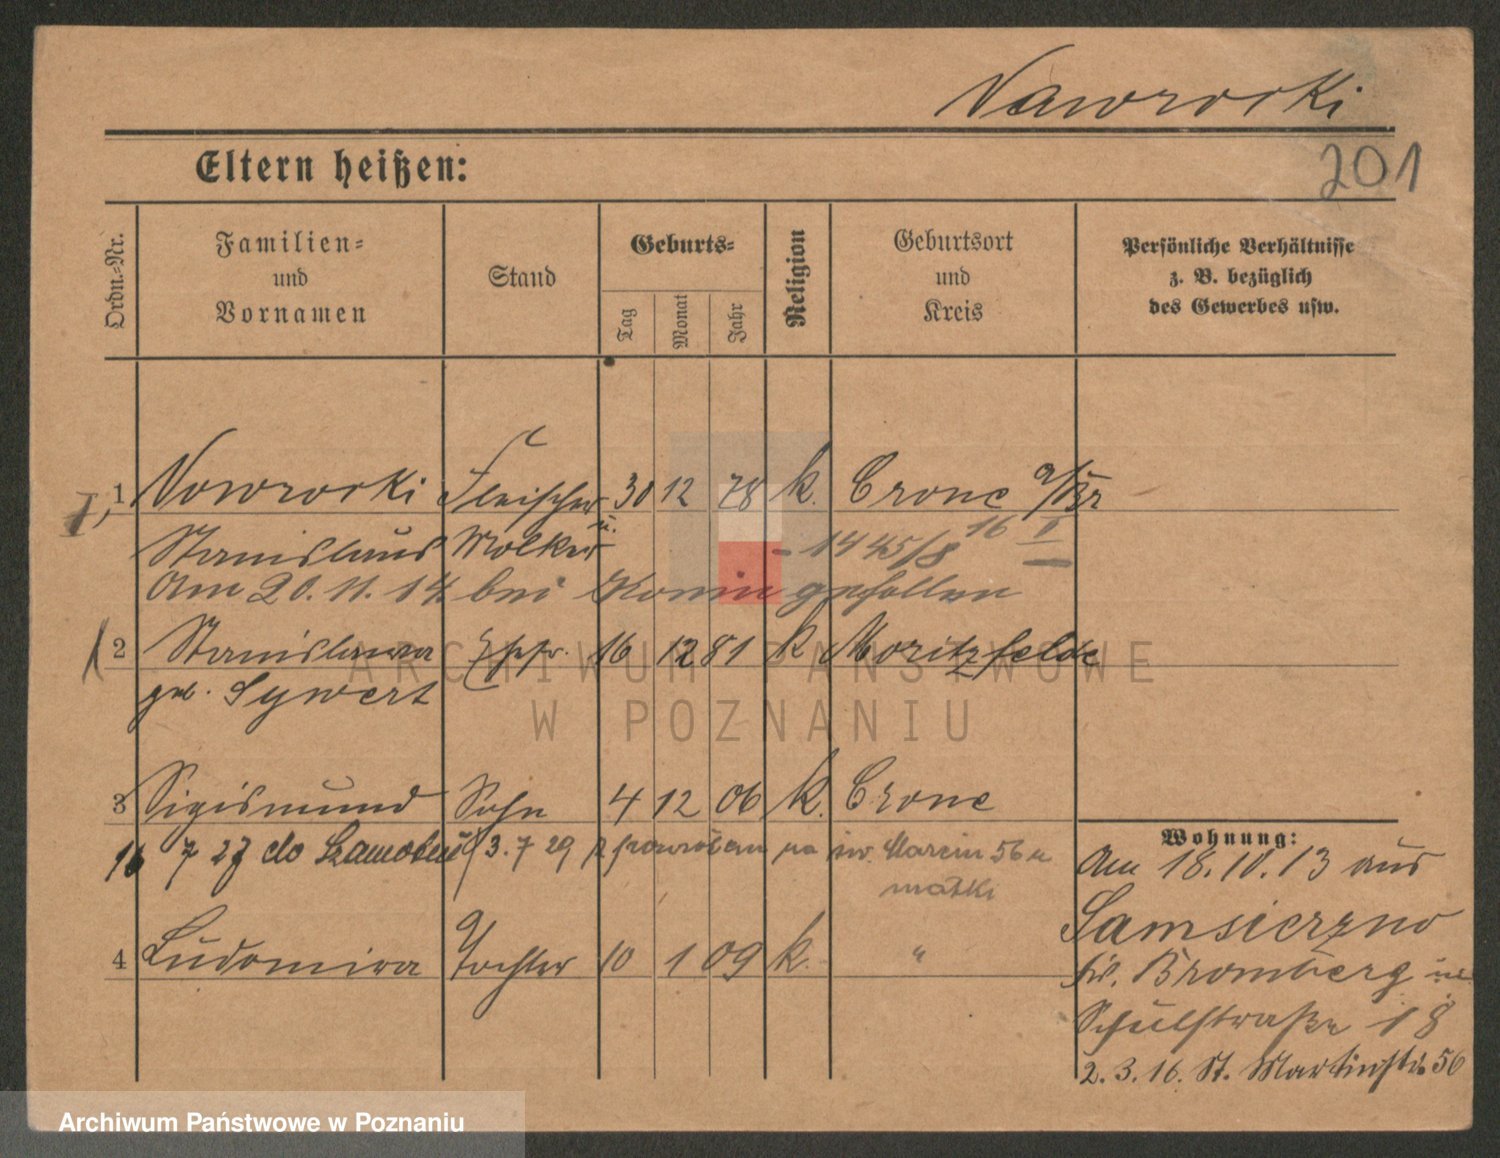 Nawrocki
201
Eltern heißen:
Ordn.-Nr.
Familien-
und
Vornamen
Stand
Geburts-
Tag
Monat
Jahr
Religion
Geburtsort
und
Kreis
Persönliche Verhältnisse
z. B. bezüglich
des Gewerbes usw.
1 Nawrocki Fleischer 30 12 78 k. Crone a/Br
Stanislaus u. Molker - 14 45/8 16 II
Am 20.11.14 bei Konin gefallen
2 Stanislawa Ehefr. 16 12 81 k Moritzfelde
geb. Sywert
3 Sigismund Sohn 4 12 06 k. Crone
16 7 27 do Szamotuł 3. 7 29 powrócił na św. Marcin 56 u
matki
4 Ludomira Tochter 10 1 09 k. "
Wohnung:
Am 18.10.13 aus
Samsieczno
Kr. Bromberg
Schulstraße 18
2. 3. 16. St. Martinstr. 56
ARCHIWUM PAŃSTWOWE
W POZNANIU
Archiwum Państwowe w Poznaniu